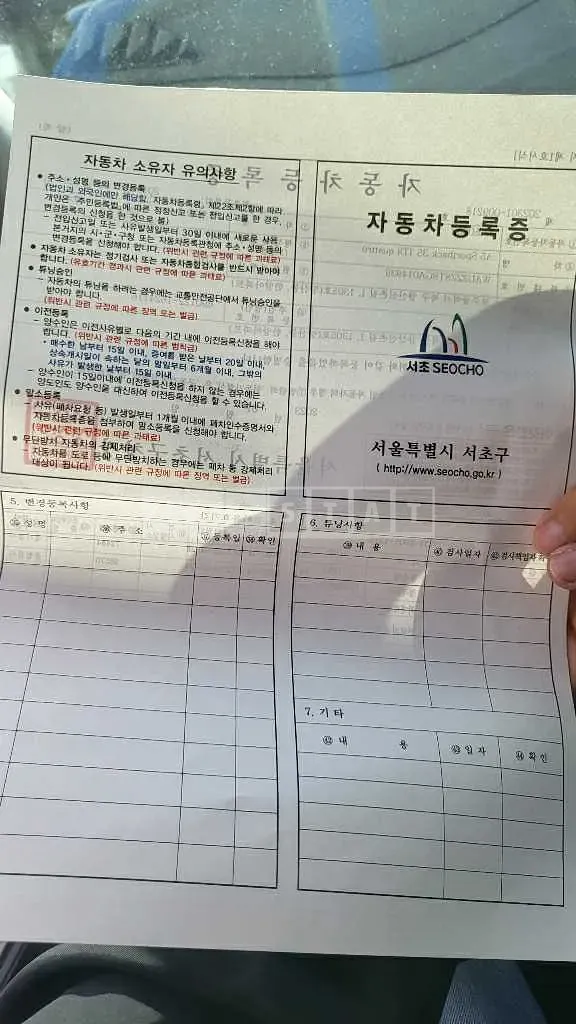 자동차 소유자 유의사항
● 주소·성명 등의 변경등록
(법인과 외국인에만 해당함, 자동차등록령」 제22조제2항에 따라
개인은 「주민등록법」에 따른 정정신고 또는 전입신고를 한 경우,
변경등록의 신청을 한 것으로 봄)
- 전입신고일 또는 사유발생일부터 30일 이내에 새로운 사용
본거지의 시·군·구청 또는 자동차등록관청에 주소·성명 등의
변경등록을 신청해야 합니다. (위반시 관련 규정에 따른 과태료)
● 자동차 소유자는 정기검사 또는 자동차종합검사를 반드시 받아야
합니다. (유효기간 경과시 관련 규정에 따른 과태료)
● 튜닝승인
- 자동차의 튜닝을 하려는 경우에는 교통안전공단에서 튜닝승인을
받아야 합니다.
(위반시 관련 규정에 따른 징역 또는 벌금)
● 이전등록
- 양수인은 이전사유별로 다음의 기간 내에 이전등록신청을 해야
합니다. (위반시 관련 규정에 따른 범칙금)
• 매수한 날부터 15일 이내, 증여를 받은 날부터 20일 이내,
상속개시일이 속하는 달의 말일부터 6개월 이내, 그밖의
사유가 발생한 날부터 15일 이내
- 양수인이 15일이내에 이전등록신청을 하지 않는 경우에는
양도인도 양수인을 대신하여 이전등록신청을 할 수 있습니다.
● 말소등록
- 사유(폐차요청 등) 발생일부터 1개월 이내에 폐차인수증명서와
자동차등록증을 첨부하여 말소등록을 신청해야 합니다.
(위반시 관련 규정에 따른 과태료)
● 무단방치 자동차의 강제처리
- 자동차를 도로 등에 무단방치하는 경우에는 폐차 등 강제처리
대상이 됩니다. (위반시 관련 규정에 따른 징역 또는 벌금)
자동차등록증
서초 SEOCHO
서울특별시 서초구
( http://www.seocho.go.kr )
5. 변경등록사항
성 명
주 소
등록일
확인
6. 튜닝사항
내 용
검사일자
7. 기타
내 용
일자
확인